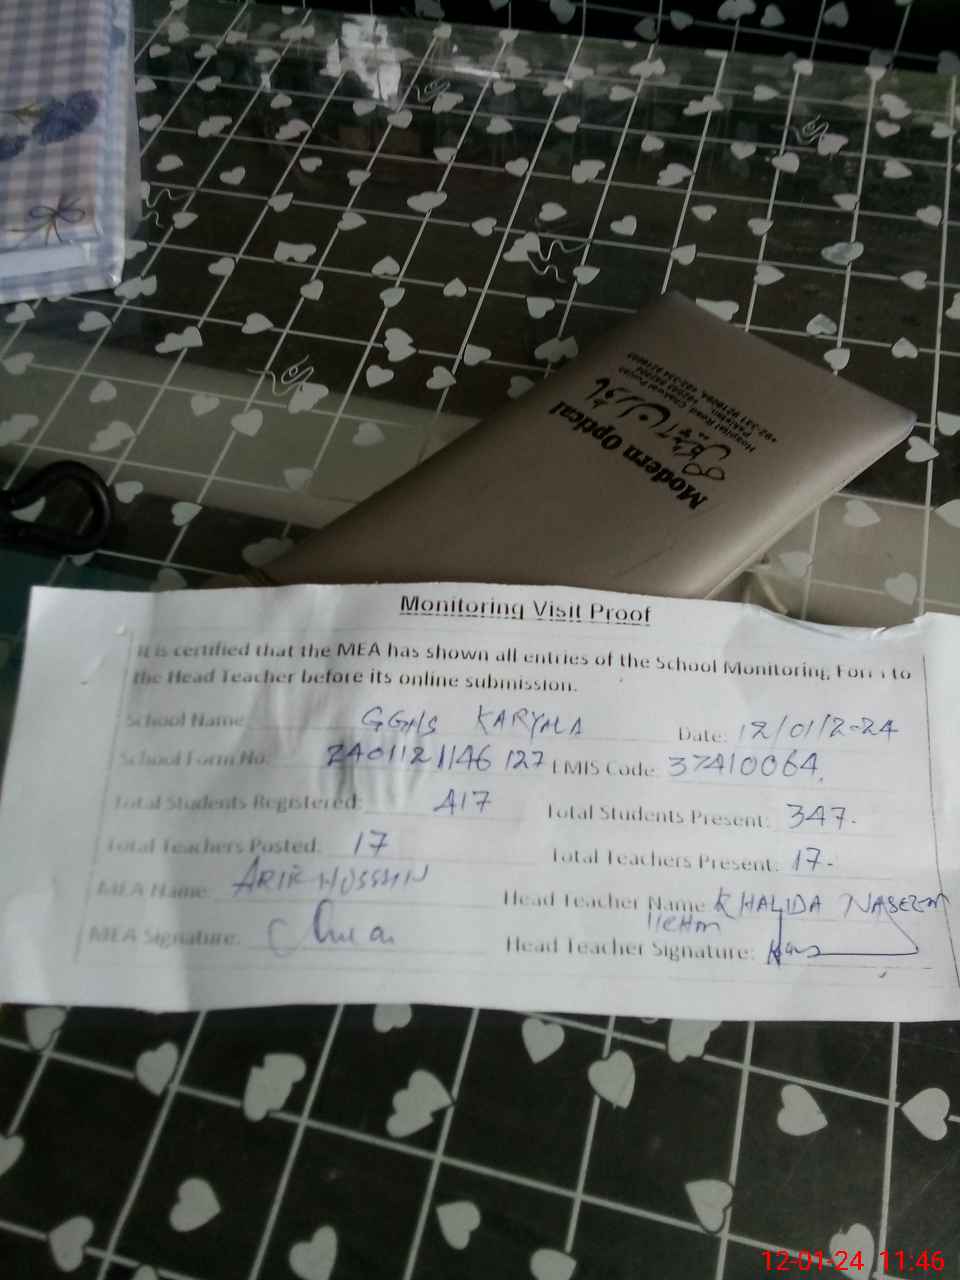 Modern Optical
ماڈرن آپٹیکل
Hospital Road, Chakwal Punjab
Monitoring Visit Proof
It is certified that the MEA has shown all entries of the School Monitoring Form to
the Head Teacher before its online submission.
School Name: GGHS KARYALA Date: 12/01/2024
School Form No: 2401121146127 EMIS Code: 37410064
Total Students Registered: 417 Total Students Present: 347.
Total Teachers Posted: 17 Total Teachers Present: 17-
MEA Name: Head Teacher Name: KHALIDA NASEEM
MEA Signature: Head Teacher Signature:
12-01-24 11:46